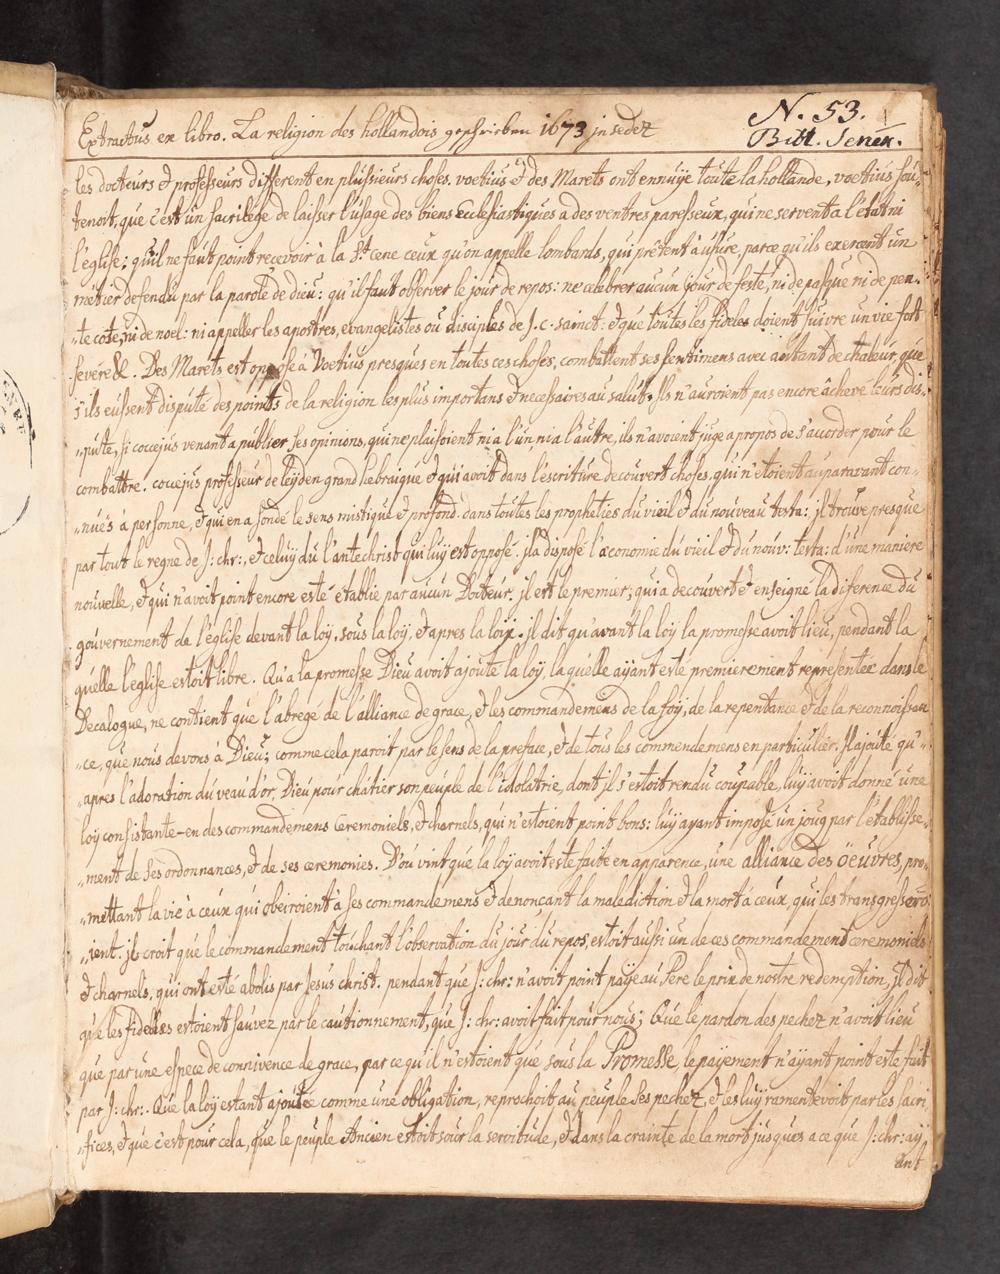 N. 53.
Extractus ex libro. La religion des hollandois geschrieben 1673 in sedez
Bibl. Jenen.
les docteurs & professeurs different en plusieurs choses. voetius & des Marets ont ennuÿe toute la hollande, voetius sou-
tenoit, que c'est un sacrilege de laisser l'usage des biens Ecclesiastiques a des ventres paresseux, qui ne servent a l'etat ni
l'eglise; qu'il ne faut point recevoir à la Ste cene ceux qu'on appelle lombards, qui prêtent à usure, parce qu'ils exercent un
métier defendu par la parole de dieu: qu'il faut observer le jour de repos: ne celebrer aucun jour de feste, ni de pasque ni de pen-
„te coste, ni de noel: ni appeller les apostres, evangelistes ou disciples de J. c. sainct: & que toutes les fideles doient suivre un vie fort
severe &. Des Marets est opposé à Voetius presques en toutes ces choses, combattent ses sentimens avec autant de chaleur, que
s'ils eussent disputé des points de la religion les plus importans & necessaires au salut. Ils n'auroient pas encore âchevé leurs dis-
„pute, si coccejus venant a publier ses opinions, qui ne plaisoient ni a l'un ni a l'autre, ils n'avoient jugé a propos de s'accorder pour le
combattre. coccejus professeur de leÿden grand hebraique & qui avoit dans l'escriture decouvert choses, qui n'etoient auparavant con-
„nues à personne, & qui en a sondé le sens mistique & profond. dans toutes les propheties du vieil & du nouveau testa: il trouve presque
par tout le regne de J: chr:, & celuy du l'antechrist qui luÿ est opposé. il a disposé l'aeconomie du vieil & du nouv: testa: d'une maniere
nouvelle, & qui n'avoit point encore esté établie par aucun Docteur. il est le premier, qui a decouvert & enseigné la diference du
gouvernement de l'église devant la loÿ, sous la loÿ, & apres la loix. il dit qu'avant la loy la promesse avoit lieu, pendant la
quelle l'eglise estoit libre. Qu'a la promesse Dieu avoit ajouté la loÿ, la quelle aÿant esté premierement representée dans le
Decalogue, ne contient que l'abregé de l'alliance de grace, & les commandemens de la foÿ, de la repentance & de la reconnoissan
„ce, que nous devons à Dieu; comme cela paroit par le sens de la preface, & de tous les commendemens en particulier. Il ajoute qu'
„apres l'adoration du veau d'or, Dieu pour châtier son peuple de l'idolatrie, dont il s'estoit rendu coupable, luÿ avoit donné une
loÿ consistante en des commandemens Ceremoniels, & charnels, qui n'estoient point bons: luÿ ayant imposé un joug par l'établisse-
„ment de ses ordonnances, & de ses ceremonies. D'ou vint que la loÿ avoit este faite en apparence, une alliance des oeuvres, pro-
„mettant la vie à ceux qui obeiroient à ses commandemens & denonçant la malediction & la mort à ceux, qui les transgressero
„ient. il croit que le commandement touchant l'observation du jour du repos, estoit aussi un de ces commandement ceremoniels
& charnels, qui ont esté abolis par Jesus christ. pendant que J: chr: n'avoit point paÿe au Pere le prix de nostre redemption, il dit
que les fidelles estoient sauvez par le cautionnement, que J: chr: avoit fait pour nous; Que le pardon des pechez n'avoit lieu
que par une espece de connivence de grace, par ce qu'il n'estoient que sous la Promesse, le paÿement n'aÿant point esté fait
par J: chr:. Que la loÿ estant ajoutée comme une obligation, reprochoit au peuple ses pechez, & les luÿ ramentevoit par les sacri
„fices, & que c'est pour cela, que le peuple Ancien estoit sour la servitude, & dans la crainte de la mort jusques a ce que J: chr: aÿ
ant